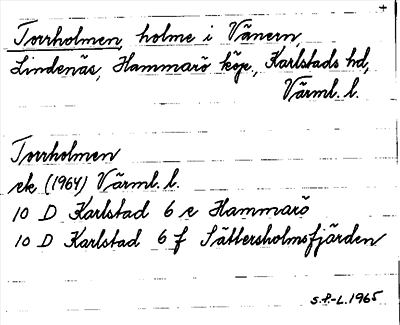 +
Torrholmen, holme i Vänern,
Lindenäs, Hammarö köp., Karlstads hd,
Värml. l.
Torrholmen
ek (1964) Värml. l.
10 D Karlstad 6 e Hammarö
10 D Karlstad 6 f Sättersholmsfjärden
S.P-L. 1965